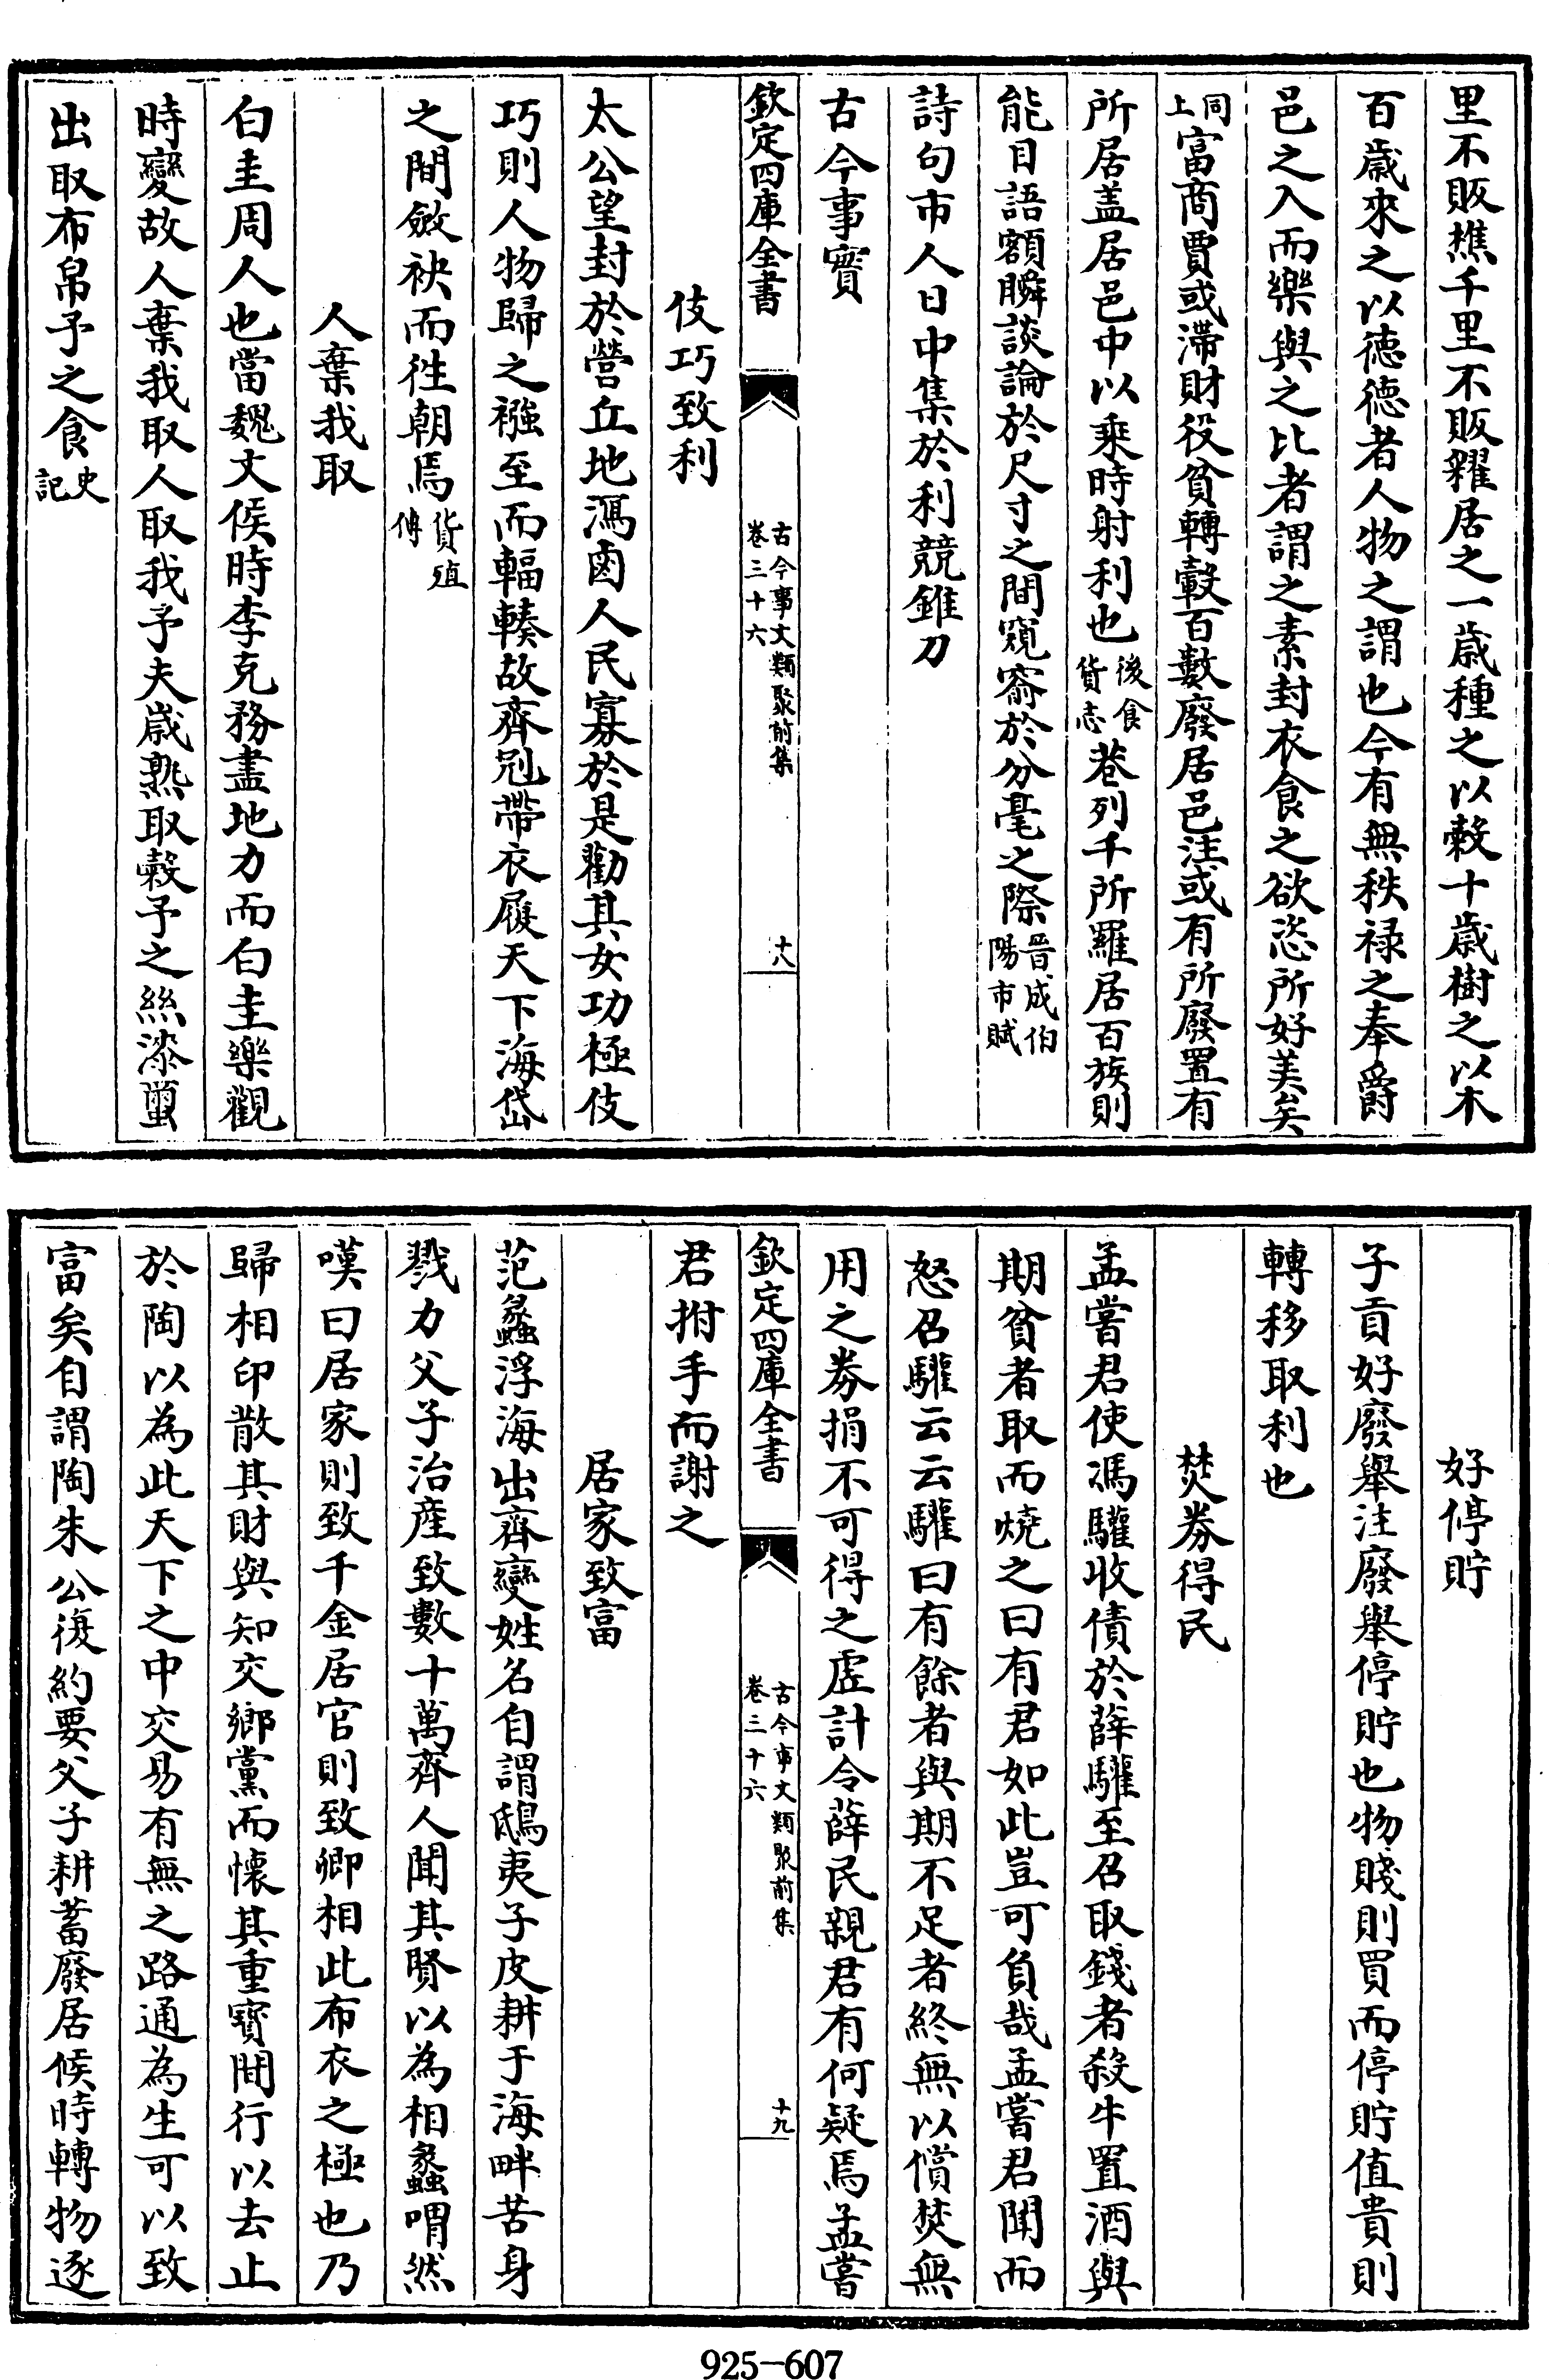 里不販樵千里不販糴居之一歲種之以糓十歲樹之以木
百歲來之以徳徳者人物之謂也今有無秩禄之奉爵
邑之入而樂與之比者謂之素封衣食之欲恣所好美矣
同上富商賈或滯財役貧轉轂百數廢居邑注或有所廢置有
所居盖居邑中以乘時射利也後食貨志巷列千所羅居百族則
能目語額瞬談論於尺寸之間窺窬於分毫之際晉成伯陽市賦
詩句市人日中集於利競錐刀
古今事實
欽定四庫全書
古今事文類聚前集
卷三十六
十八
伎巧致利
太公望封於營丘地潟鹵人民寡於是勸其女功極伎
巧則人物歸之襁至而輻輳故齊冠帶衣履天下海岱
之間斂袂而徃朝焉貨殖傳
人棄我取
白圭周人也當魏文侯時李克務盡地力而白圭樂觀
時變故人棄我取人取我予夫歲熟取糓予之絲漆蠒
出取布帛予之食史記
好停貯
子貢好廢舉注廢舉停貯也物賤則買而停貯值貴則
轉移取利也
焚劵得民
孟嘗君使馮驩收債於薛驩至召取錢者殺牛置酒與
期貧者取而燒之曰有君如此豈可負哉孟嘗君聞而
怒召驩云云驩曰有餘者與期不足者終無以償焚無
用之劵捐不可得之虛計令薛民親君有何疑焉孟嘗
欽定四庫全書
古今事文類聚前集
卷三十六
十九
君拊手而謝之
居家致富
范蠡浮海出齊變姓名自謂鴟夷子皮耕于海畔苦身
戮力父子治產致數十萬齊人聞其賢以為相蠡喟然
嘆曰居家則致千金居官則致卿相此布衣之極也乃
歸相印散其財與知交鄉黨而懷其重寳間行以去止
於陶以為此天下之中交易有無之路通為生可以致
富矣自謂陶朱公復約要父子耕蓄廢居候時轉物逐
925-607